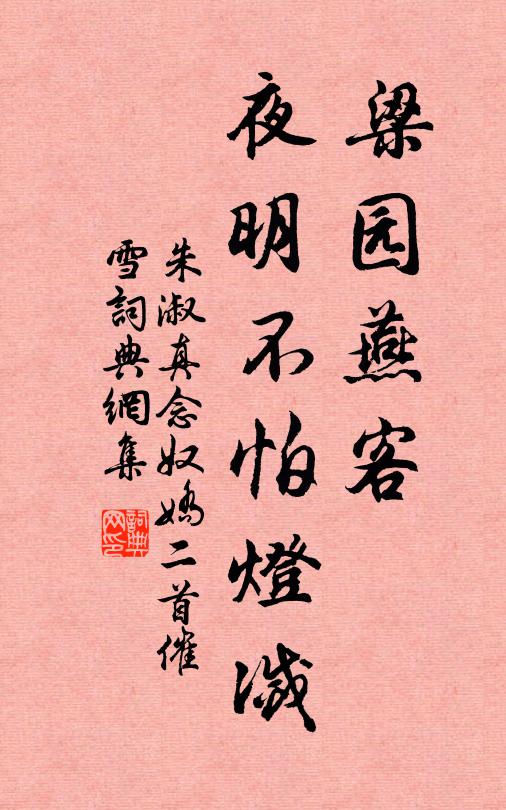 梁园燕客
夜明不怕燈滅
朱淑真念奴嬌二首催
雪詞典網集
詞典网印